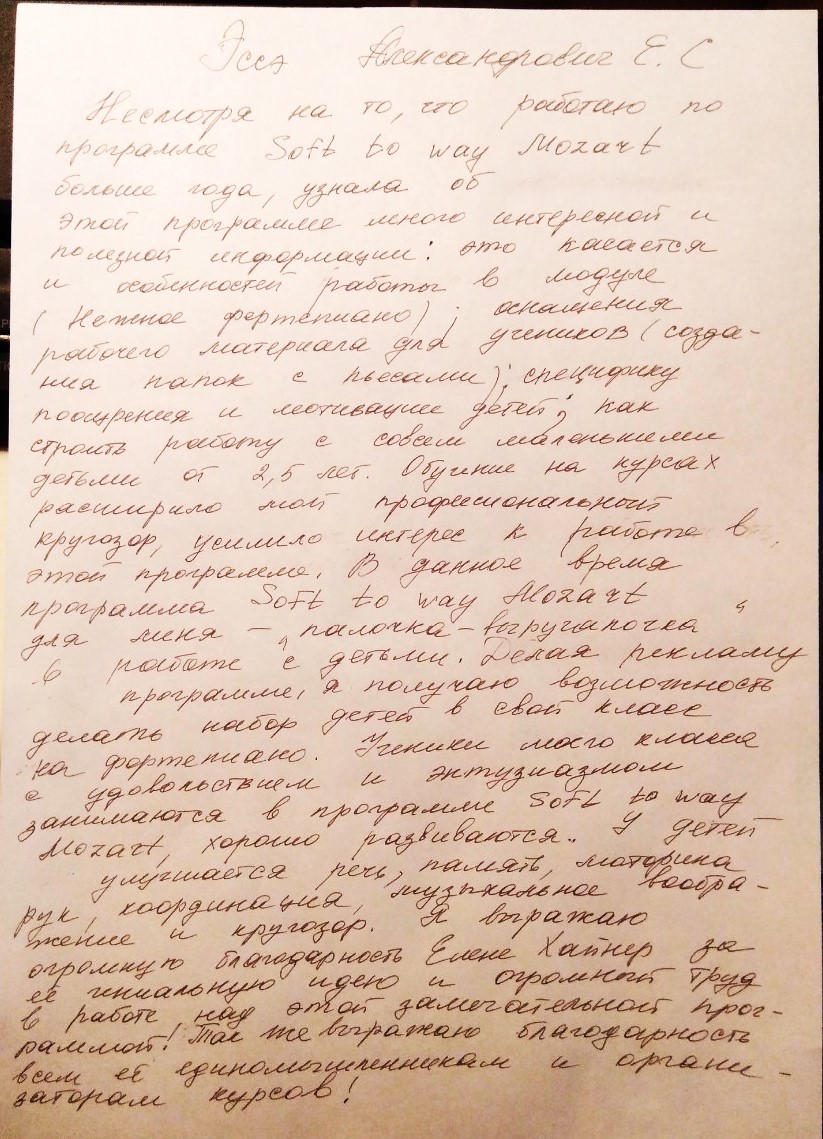 Эссэ Александрович Е. С
Несмотря на то, что работаю по
программе Soft to way Mozart
больше года, узнала об
этой программе много интересной и
полезной информации: это касается
и особенностей работы в модуле
(Нежное фортепиано); оснащения
рабочего материала для учеников (созда-
ния папок с пьесами); специфику
поощрения и мотивации детей; как
строить работу с совсем маленькими
детьми от 2,5 лет. Обучние на курсах
расширило мой професиональный
кругозор, усилило интерес к работе в
этой программе. В данное время
программа Soft to way Mozart
для меня – „палочка-выручалочка"
в работе с детьми. Делая рекламу
программе, я получаю возможность
делать набор детей в свой класс
на фортепиано. Ученики моего класса
с удовольствием и энтузиазмом
занимаются в программе Soft to way
Mozart, хорошо развиваются. У детей
улучшается речь, память, моторика
рук, координация, музыкальное вообра-
жение и кругозор. Я выражаю
огромную благодарность Елене Хайнер за
её гениальную идею и огромный труд
в работе над этой замечательной прог-
раммой! Так же выражаю благодарность
всем её единомышленникам и органи-
заторам курсов!